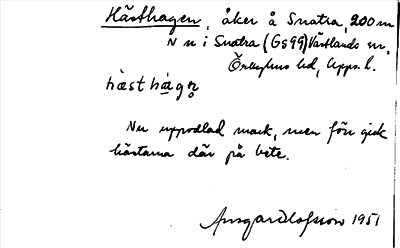 Hästhagen, åker å Snatra, 200 m
N n i Snatra (Gs 99) Västlands sn,
Örbyhus hd, Upps. l.
hàsthágn̥
Nu uppodlad mark, men förr gick
hästarna där på bete.
Ansgar Olofsson 1951